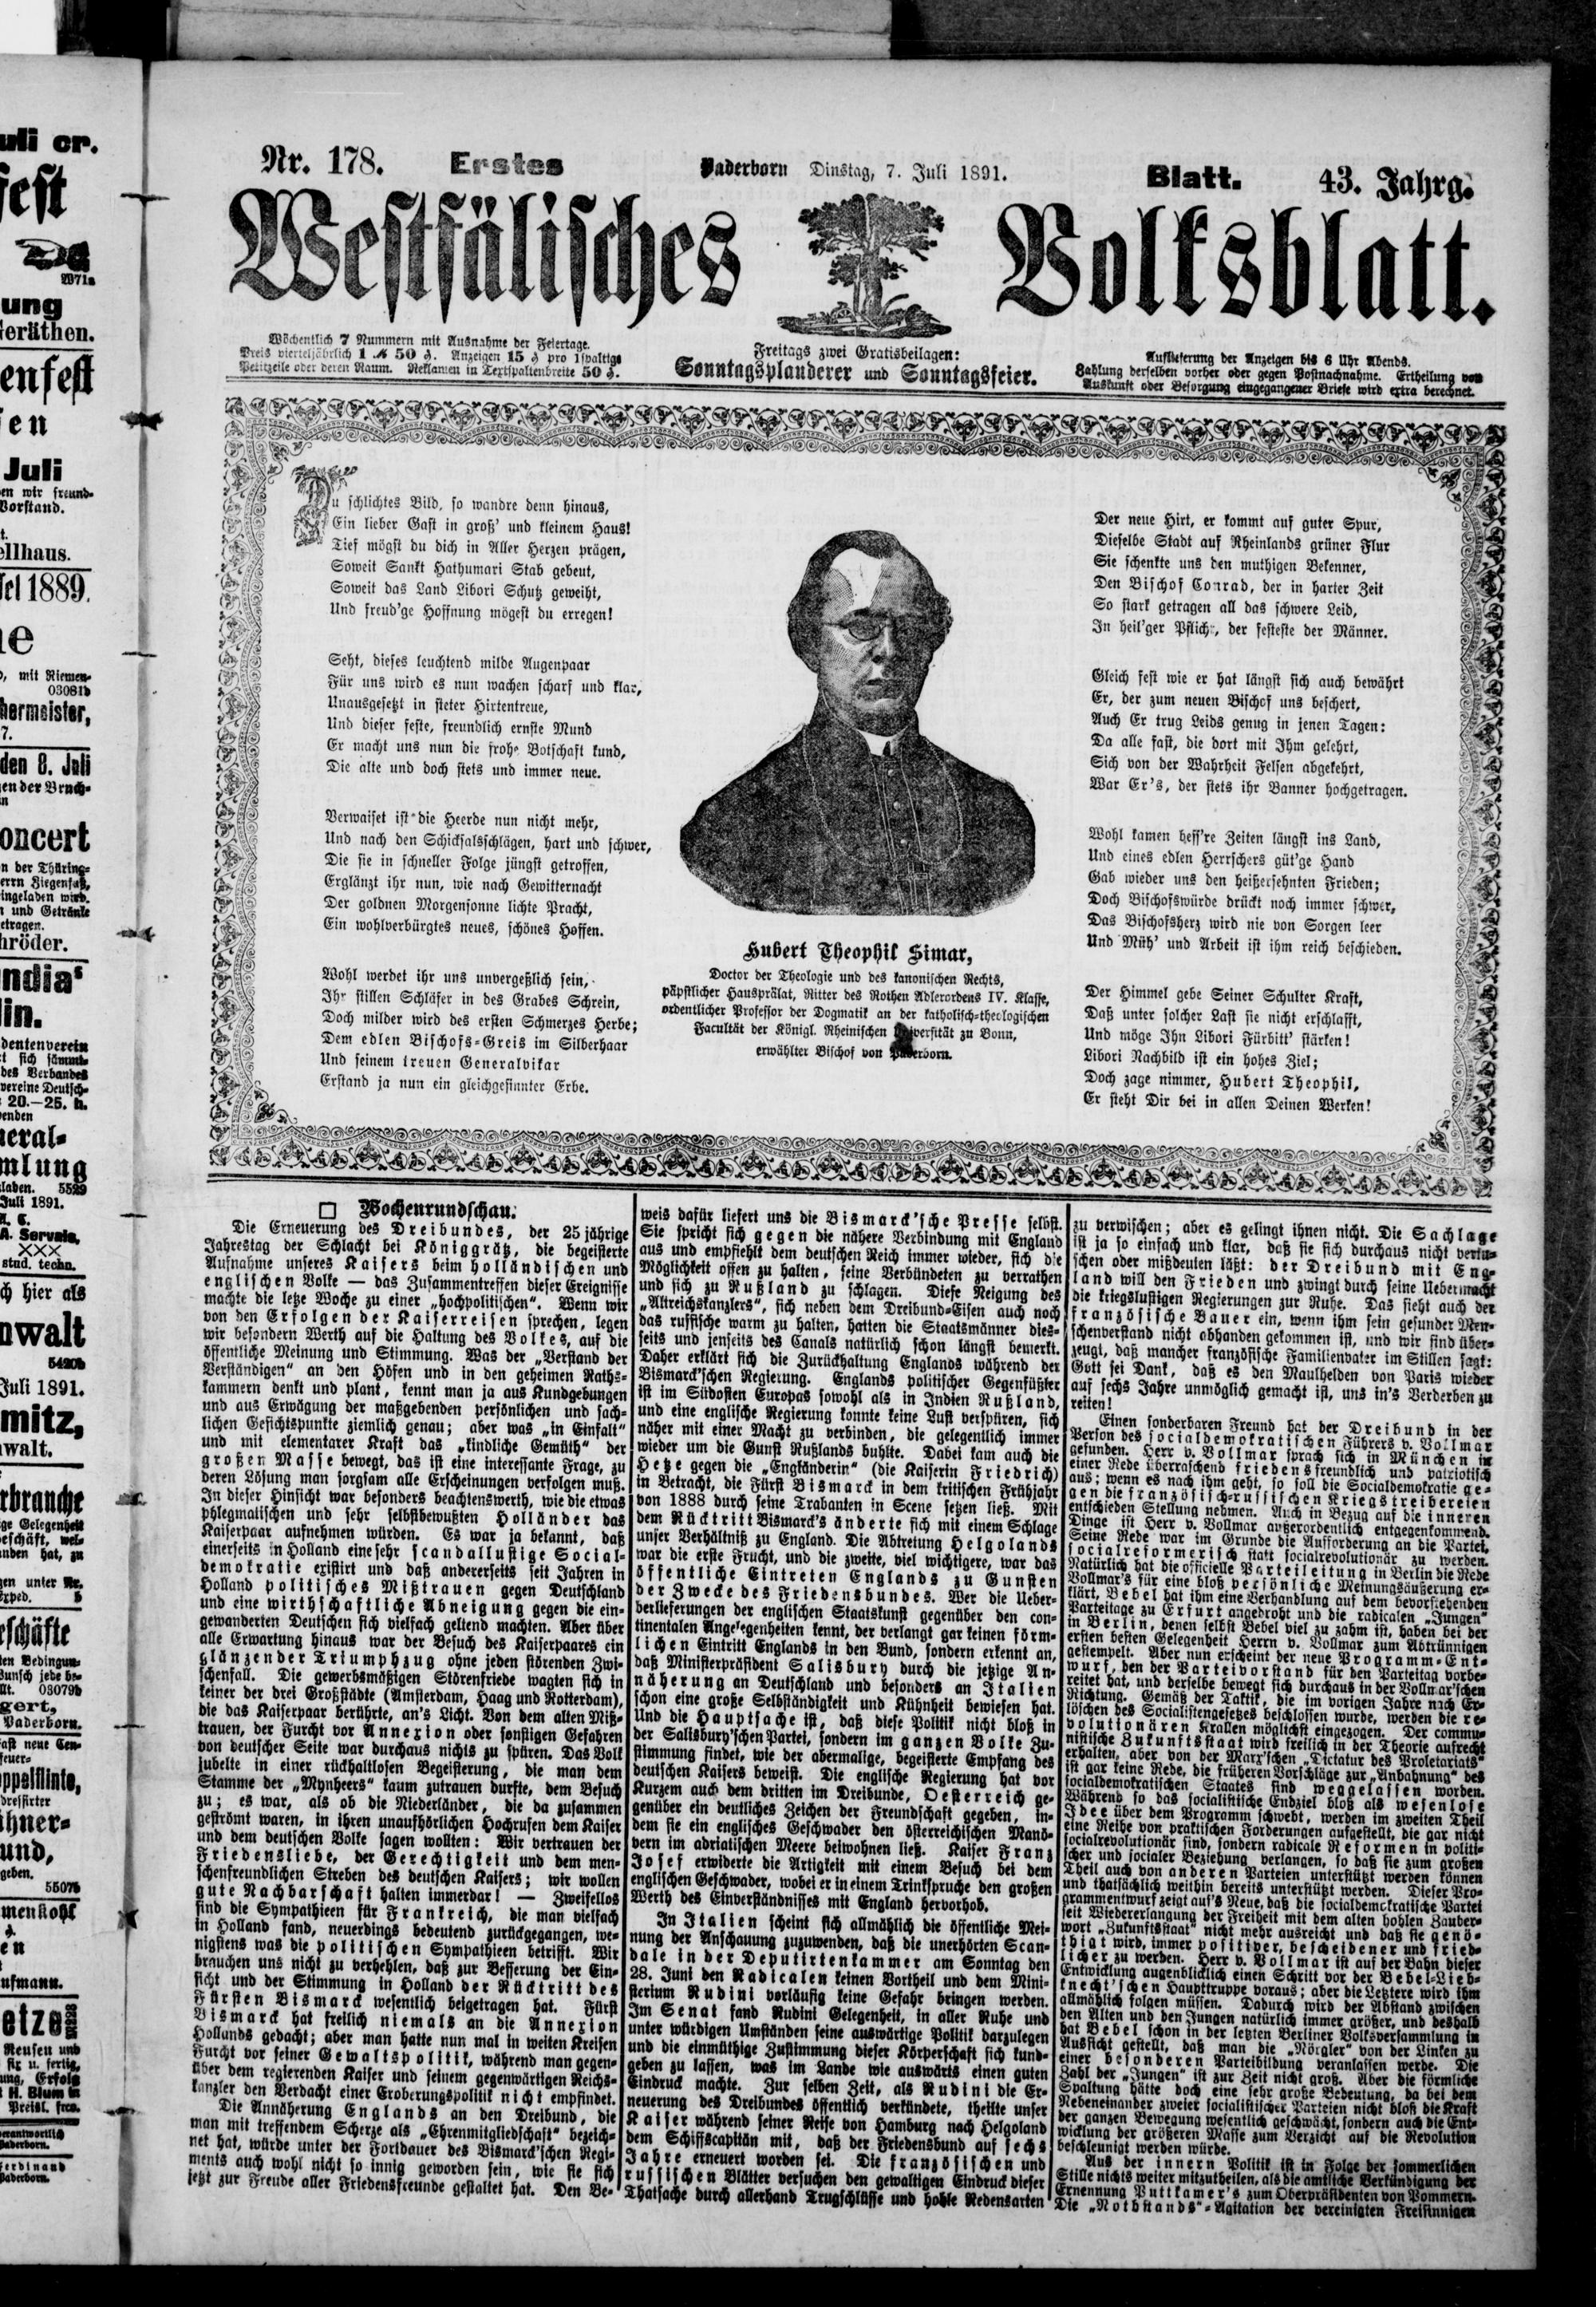 uli cr.
fest
2971a
ung
Geräthen.
enfest
fen
Juli
en wir freund-
Vorstand.
ellhaus.
1889.
mit Riemen-
03081b
hermeister,
7.
den 8. Juli
en der Bruch-
oncert
n der Thüring-
errn Ziegenfuß,
ingeladen wird.
n und Getränke
etragen.
hröder.
ndia'
lin.
dentenverein
t sich sämmt-
des Verbandes
vereine Deutsch-
20.—25. h.
enden
neral-
mlung
laden. 5529
Juli 1891.
A. C.
A. Servais,
XXX
stud. techn.
ch hier als
nwalt
5420b
Juli 1891.
mitz,
nwalt.
Nr. 178. Erstes Paderborn Dinstag, 7. Juli 1891. Blatt. 43. Jahrg.
Westfälisches Volksblatt.
Wöchentlich 7 Nummern mit Ausnahme der Feiertage.
Preis vierteljährlich 1 ℳ 50 ₰. Anzeigen 15 ₰ pro 1spaltige
Petitzeile oder deren Raum. Reklamen in Textspaltenbreite 50 ₰.
Freitags zwei Gratisbeilagen:
Sonntagsplauderer und Sonntagsfeier.
Auflieferung der Anzeigen bis 6 Uhr Abends.
Zahlung derselben vorher oder gegen Postnachnahme. Ertheilung von
Auskunft oder Besorgung eingegangener Briefe wird extra berechnet.
Du schlichtes Bild, so wandre denn hinaus,
Ein lieber Gast in groß' und kleinem Haus!
Tief mögst du dich in Aller Herzen prägen,
Soweit Sankt Hathumari Stab gebeut,
Soweit das Land Libori Schutz geweiht,
Und freud'ge Hoffnung mögest du erregen!
Seht, dieses leuchtend milde Augenpaar
Für uns wird es nun wachen scharf und klar,
Unausgesetzt in steter Hirtentreue,
Und dieser feste, freundlich ernste Mund
Er macht uns nun die frohe Botschaft kund,
Die alte und doch stets und immer neue.
Verwaiset ist die Heerde nun nicht mehr,
Und nach den Schicksalsschlägen, hart und schwer,
Die sie in schneller Folge jüngst getroffen,
Erglänzt ihr nun, wie nach Gewitternacht
Der goldnen Morgensonne lichte Pracht,
Ein wohlverbürgtes neues, schönes Hoffen.
Wohl werdet ihr uns unvergeßlich sein,
Ihr stillen Schläfer in des Grabes Schrein,
Doch milder wird des ersten Schmerzes Herbe;
Dem edlen Bischofs-Greis im Silberhaar
Und seinem treuen Generalvikar
Erstand ja nun ein gleichgesinnter Erbe.
Hubert Theophil Simar,
Doctor der Theologie und des kanonischen Rechts,
päpstlicher Hausprälat, Ritter des Rothen Adlerordens IV. Klasse,
ordentlicher Professor der Dogmatik an der katholisch-theologischen
Facultät der Königl. Rheinischen Universität zu Bonn,
erwählter Bischof von Paderborn.
Der neue Hirt, er kommt auf guter Spur,
Dieselbe Stadt auf Rheinlands grüner Flur
Sie schenkte uns den muthigen Bekenner,
Den Bischof Conrad, der in harter Zeit
So stark getragen all das schwere Leid,
In heil'ger Pflicht, der festeste der Männer.
Gleich fest wie er hat längst sich auch bewährt
Er, der zum neuen Bischof uns beschert,
Auch Er trug Leids genug in jenen Tagen:
Da alle fast, die dort mit Ihm gelehrt,
Sich von der Wahrheit Felsen abgekehrt,
War Er's, der stets ihr Banner hochgetragen.
Wohl kamen bess're Zeiten längst ins Land,
Und eines edlen Herrschers güt'ge Hand
Gab wieder uns den heißersehnten Frieden;
Doch Bischofswürde drückt noch immer schwer,
Das Bischofsherz wird nie von Sorgen leer
Und Müh' und Arbeit ist ihm reich beschieden.
Der Himmel gebe Seiner Schulter Kraft,
Daß unter solcher Last sie nicht erschlafft,
Und möge Ihn Libori Fürbitt' stärken!
Libori Nachbild ist ein hohes Ziel;
Doch zage nimmer, Hubert Theophil,
Er steht Dir bei in allen Deinen Werken!
□ Wochenrundschau.
Die Erneuerung des Dreibundes, der 25jährige
Jahrestag der Schlacht bei Königgrätz, die begeisterte
Aufnahme unseres Kaisers beim holländischen und
englischen Volke — das Zusammentreffen dieser Ereignisse
machte die letze Woche zu einer „hochpolitischen“. Wenn wir
von den Erfolgen der Kaiserreisen sprechen, legen
wir besondern Werth auf die Haltung des Volkes, auf die
öffentliche Meinung und Stimmung. Was der „Verstand der
Verständigen“ an den Höfen und in den geheimen Raths-
kammern denkt und plant, kennt man ja aus Kundgebungen
und aus Erwägung der maßgebenden persönlichen und sach-
lichen Gesichtspunkte ziemlich genau; aber was „in Einfalt“
und mit elementarer Kraft das „kindliche Gemüth“ der
großen Masse bewegt, das ist eine interessante Frage, zu
deren Lösung man sorgsam alle Erscheinungen verfolgen muß.
In dieser Hinsicht war besonders beachtenswerth, wie die etwas
phlegmatischen und sehr selbstbewußten Holländer das
Kaiserpaar aufnehmen würden. Es war ja bekannt, daß
einerseits in Holland eine sehr scandallustige Social-
demokratie existirt und daß andererseits seit Jahren in
Holland politisches Mißtrauen gegen Deutschland
und eine wirthschaftliche Abneigung gegen die ein-
gewanderten Deutschen sich vielfach geltend machten. Aber über
alle Erwartung hinaus war der Besuch des Kaiserpaares ein
glänzender Triumphzug ohne jeden störenden Zwi-
schenfall. Die gewerbsmäßigen Störenfriede wagten sich in
keiner der drei Großstädte (Amsterdam, Haag und Rotterdam),
die das Kaiserpaar berührte, an's Licht. Von dem alten Miß-
trauen, der Furcht vor Annexion oder sonstigen Gefahren
von deutscher Seite war durchaus nichts zu spüren. Das Volk
jubelte in einer rückhaltlosen Begeisterung, die man dem
Stamme der „Mynheers“ kaum zutrauen durfte, dem Besuch
zu; es war, als ob die Niederländer, die da zusammen
geströmt waren, in ihren unaufhörlichen Hochrufen dem Kaiser
und dem deutschen Volke sagen wollten: Wir vertrauen der
Friedensliebe, der Gerechtigkeit und dem men-
schenfreundlichen Streben des deutschen Kaisers; wir wollen
gute Nachbarschaft halten immerdar! — Zweifellos
sind die Sympathieen für Frankreich, die man vielfach
in Holland fand, neuerdings bedeutend zurückgegangen, we-
nigstens was die politischen Sympathieen betrifft. Wir
brauchen uns nicht zu verhehlen, daß zur Besserung der Ein-
sicht und der Stimmung in Holland der Rücktritt des
Fürsten Bismarck wesentlich beigetragen hat. Fürst
Bismarck hat freilich niemals an die Annexion
Hollands gedacht; aber man hatte nun mal in weiten Kreisen
Furcht vor seiner Gewaltspolitik, während man gegen-
über dem regierenden Kaiser und seinem gegenwärtigen Reichs-
kanzler den Verdacht einer Eroberungspolitik nicht empfindet.
Die Annäherung Englands an den Dreibund, die
man mit treffendem Scherze als „Ehrenmitgliedschaft“ bezeich-
net hat, würde unter der Fortdauer des Bismarck'schen Regi-
ments auch wohl nicht so innig geworden sein, wie sie sich
jetzt zur Freude aller Friedensfreunde gestaltet hat. Den Be-
weis dafür liefert uns die Bismarck'sche Presse selbst.
Sie spricht sich gegen die nähere Verbindung mit England
aus und empfiehlt dem deutschen Reich immer wieder, sich die
Möglichkeit offen zu halten, seine Verbündeten zu verrathen
und sich zu Rußland zu schlagen. Diese Neigung des
„Altreichskanzlers“, sich neben dem Dreibund-Eisen auch noch
das russische warm zu halten, hatten die Staatsmänner dies-
seits und jenseits des Canals natürlich schon längst bemerkt.
Daher erklärt sich die Zurückhaltung Englands während der
Bismarck'schen Regierung. Englands politischer Gegenfüßler
ist im Südosten Europas sowohl als in Indien Rußland,
und eine englische Regierung konnte keine Lust verspüren, sich
näher mit einer Macht zu verbinden, die gelegentlich immer
wieder um die Gunst Rußlands buhlte. Dabei kam auch die
Hetze gegen die „Engländerin“ (die Kaiserin Friedrich)
in Betracht, die Fürst Bismarck in dem kritischen Frühjahr
von 1888 durch seine Trabanten in Scene setzen ließ. Mit
dem Rücktritt Bismarck's änderte sich mit einem Schlage
unser Verhältniß zu England. Die Abtretung Helgolands
war die erste Frucht, und die zweite, viel wichtigere, war das
öffentliche Eintreten Englands zu Gunsten
der Zwecke des Friedensbundes. Wer die Ueber-
berlieferungen der englischen Staatskunst gegenüber den con-
tinentalen Angelegenheiten kennt, der verlangt gar keinen förm-
lichen Eintritt Englands in den Bund, sondern erkennt an,
daß Ministerpräsident Salisbury durch die jetzige An-
näherung an Deutschland und besonders an Italien
schon eine große Selbständigkeit und Kühnheit bewiesen hat.
Und die Hauptsache ist, daß diese Politik nicht bloß in
der Salisbury'schen Partei, sondern im ganzen Volke Zu-
stimmung findet, wie der abermalige, begeisterte Empfang des
deutschen Kaisers beweist. Die englische Regierung hat vor
Kurzem auch dem dritten im Dreibunde, Oesterreich ge-
genüber ein deutliches Zeichen der Freundschaft gegeben, in-
dem sie ein englisches Geschwader den österreichischen Manö-
vern im adriatischen Meere beiwohnen ließ. Kaiser Franz
Josef erwiderte die Artigkeit mit einem Besuch bei dem
englischen Geschwader, wobei er in einem Trinkspruche den großen
Werth des Einverständnisses mit England hervorhob.
In Italien scheint sich allmählich die öffentliche Mei-
nung der Anschauung zuzuwenden, daß die unerhörten Scan-
dale in der Deputirtenkammer am Sonntag den
28. Juni den Radicalen keinen Vortheil und dem Mini-
sterium Rudini vorläufig keine Gefahr bringen werden.
Im Senat fand Rudini Gelegenheit, in aller Ruhe und
unter würdigen Umständen seine auswärtige Politik darzulegen
und die einmüthige Zustimmung dieser Körperschaft sich kund-
geben zu lassen, was im Lande wie auswärts einen guten
Eindruck machte. Zur selben Zeit, als Rudini die Er-
neuerung des Dreibundes öffentlich verkündete, theilte unser
Kaiser während seiner Reise von Hamburg nach Helgoland
dem Schiffscapitän mit, daß der Friedensbund auf sechs
Jahre erneuert worden sei. Die französischen und
russischen Blätter versuchen den gewaltigen Eindruck dieser
Thatsache durch allerhand Trugschlüsse und hohle Redensarten
zu verwischen; aber es gelingt ihnen nicht. Die Sachlage
ist ja so einfach und klar, daß sie sich durchaus nicht vertu-
schen oder mißdeuten läßt: der Dreibund mit Eng-
land will den Frieden und zwingt durch seine Uebermacht
die kriegslustigen Regierungen zur Ruhe. Das sieht auch der
französische Bauer ein, wenn ihm sein gesunder Men-
schenverstand nicht abhanden gekommen ist, und wir sind über-
zeugt, daß mancher französische Familienvater im Stillen sagt:
Gott sei Dank, daß es den Maulhelden von Paris wieder
auf sechs Jahre unmöglich gemacht ist, uns in's Verderben zu
reiten!
Einen sonderbaren Freund hat der Dreibund in der
Person des socialdemokratischen Führers v. Vollmar
gefunden. Herr v. Vollmar sprach sich in München in
einer Rede überraschend friedensfreundlich und patriotisch
aus; wenn es nach ihm geht, so soll die Socialdemokratie ge-
gen die französisch-russischen Kriegstreibereien
entschieden Stellung nehmen. Auch in Bezug auf die inneren
Dinge ist Herr v. Vollmar außerordentlich entgegenkommend.
Seine Rede war im Grunde die Aufforderung an die Partei,
socialreformerisch statt socialrevolutionär zu werden.
Natürlich hat die officielle Parteileitung in Berlin die Rede
Vollmar's für eine bloß persönliche Meinungsäußerung er-
klärt, Bebel hat ihm eine Verhandlung auf dem bevorstehenden
Parteitage zu Erfurt angedroht und die radicalen „Jungen“
in Berlin, denen selbst Bebel viel zu zahm ist, haben bei der
ersten besten Gelegenheit Herrn v. Vollmar zum Abtrünnigen
gestempelt. Aber nun erscheint der neue Programm-Ent-
wurf, den der Parteivorstand für den Parteitag vorbe-
reitet hat, und derselbe bewegt sich durchaus in der Vollmar'schen
Richtung. Gemäß der Taktik, die im vorigen Jahre nach Er-
löschen des Socialistengesetzes beschlossen wurde, werden die re-
volutionären Krallen möglichst eingezogen. Der commu-
nistische Zukunftsstaat wird freilich in der Theorie aufrecht
erhalten, aber von der Marx'schen „Dictatur des Proletariats“
ist gar keine Rede, die früheren Vorschläge zur „Anbahnung“ des
socialdemokratischen Staates sind weggelassen worden.
Während so das socialistische Endziel bloß als wesenlose
Idee über dem Programm schwebt, werden im zweiten Theil
eine Reihe von praktischen Forderungen aufgestellt, die gar nicht
socialrevolutionär sind, sondern radicale Reformen in politi-
scher und socialer Beziehung verlangen, so daß sie zum großen
Theil auch von anderen Parteien unterstützt werden können
und thatsächlich weithin bereits unterstützt werden. Dieser Pro-
grammentwurf zeigt auf's Neue, daß die socialdemokratische Partei
seit Wiedererlangung der Freiheit mit dem alten hohlen Zauber-
wort „Zukunftsstaat“ nicht mehr ausreicht und daß sie genö-
thigt wird, immer positiver, bescheidener und fried-
licher zu werden. Herr v. Vollmar ist auf der Bahn dieser
Entwicklung augenblicklich einen Schritt vor der Bebel-Lieb-
knecht'schen Haupttruppe voraus; aber die Letztere wird ihm
allmählich folgen müssen. Dadurch wird der Abstand zwischen
den Alten und den Jungen natürlich immer größer, und deshalb
hat Bebel schon in der letzten Berliner Volksversammlung in
Aussicht gestellt, daß man die „Nörgler“ von der Linken zu
einer besonderen Parteibildung veranlassen werde. Die
Zahl der „Jungen“ ist zur Zeit nicht groß. Aber die förmliche
Spaltung hätte doch eine sehr große Bedeutung, da bei dem
Nebeneinander zweier socialistischer Parteien nicht bloß die Kraft
der ganzen Bewegung wesentlich geschwächt, sondern auch die Ent-
wicklung der größeren Masse zum Verzicht auf die Revolution
beschleunigt werden würde.
Aus der innern Politik ist in Folge der sommerlichen
Stille nichts weiter mitzutheilen, als die amtliche Verkündigung der
Ernennung Puttkamer's zum Oberpräsidenten von Pommern.
Die „Nothstands“-Agitation der vereinigten Freisinnigen